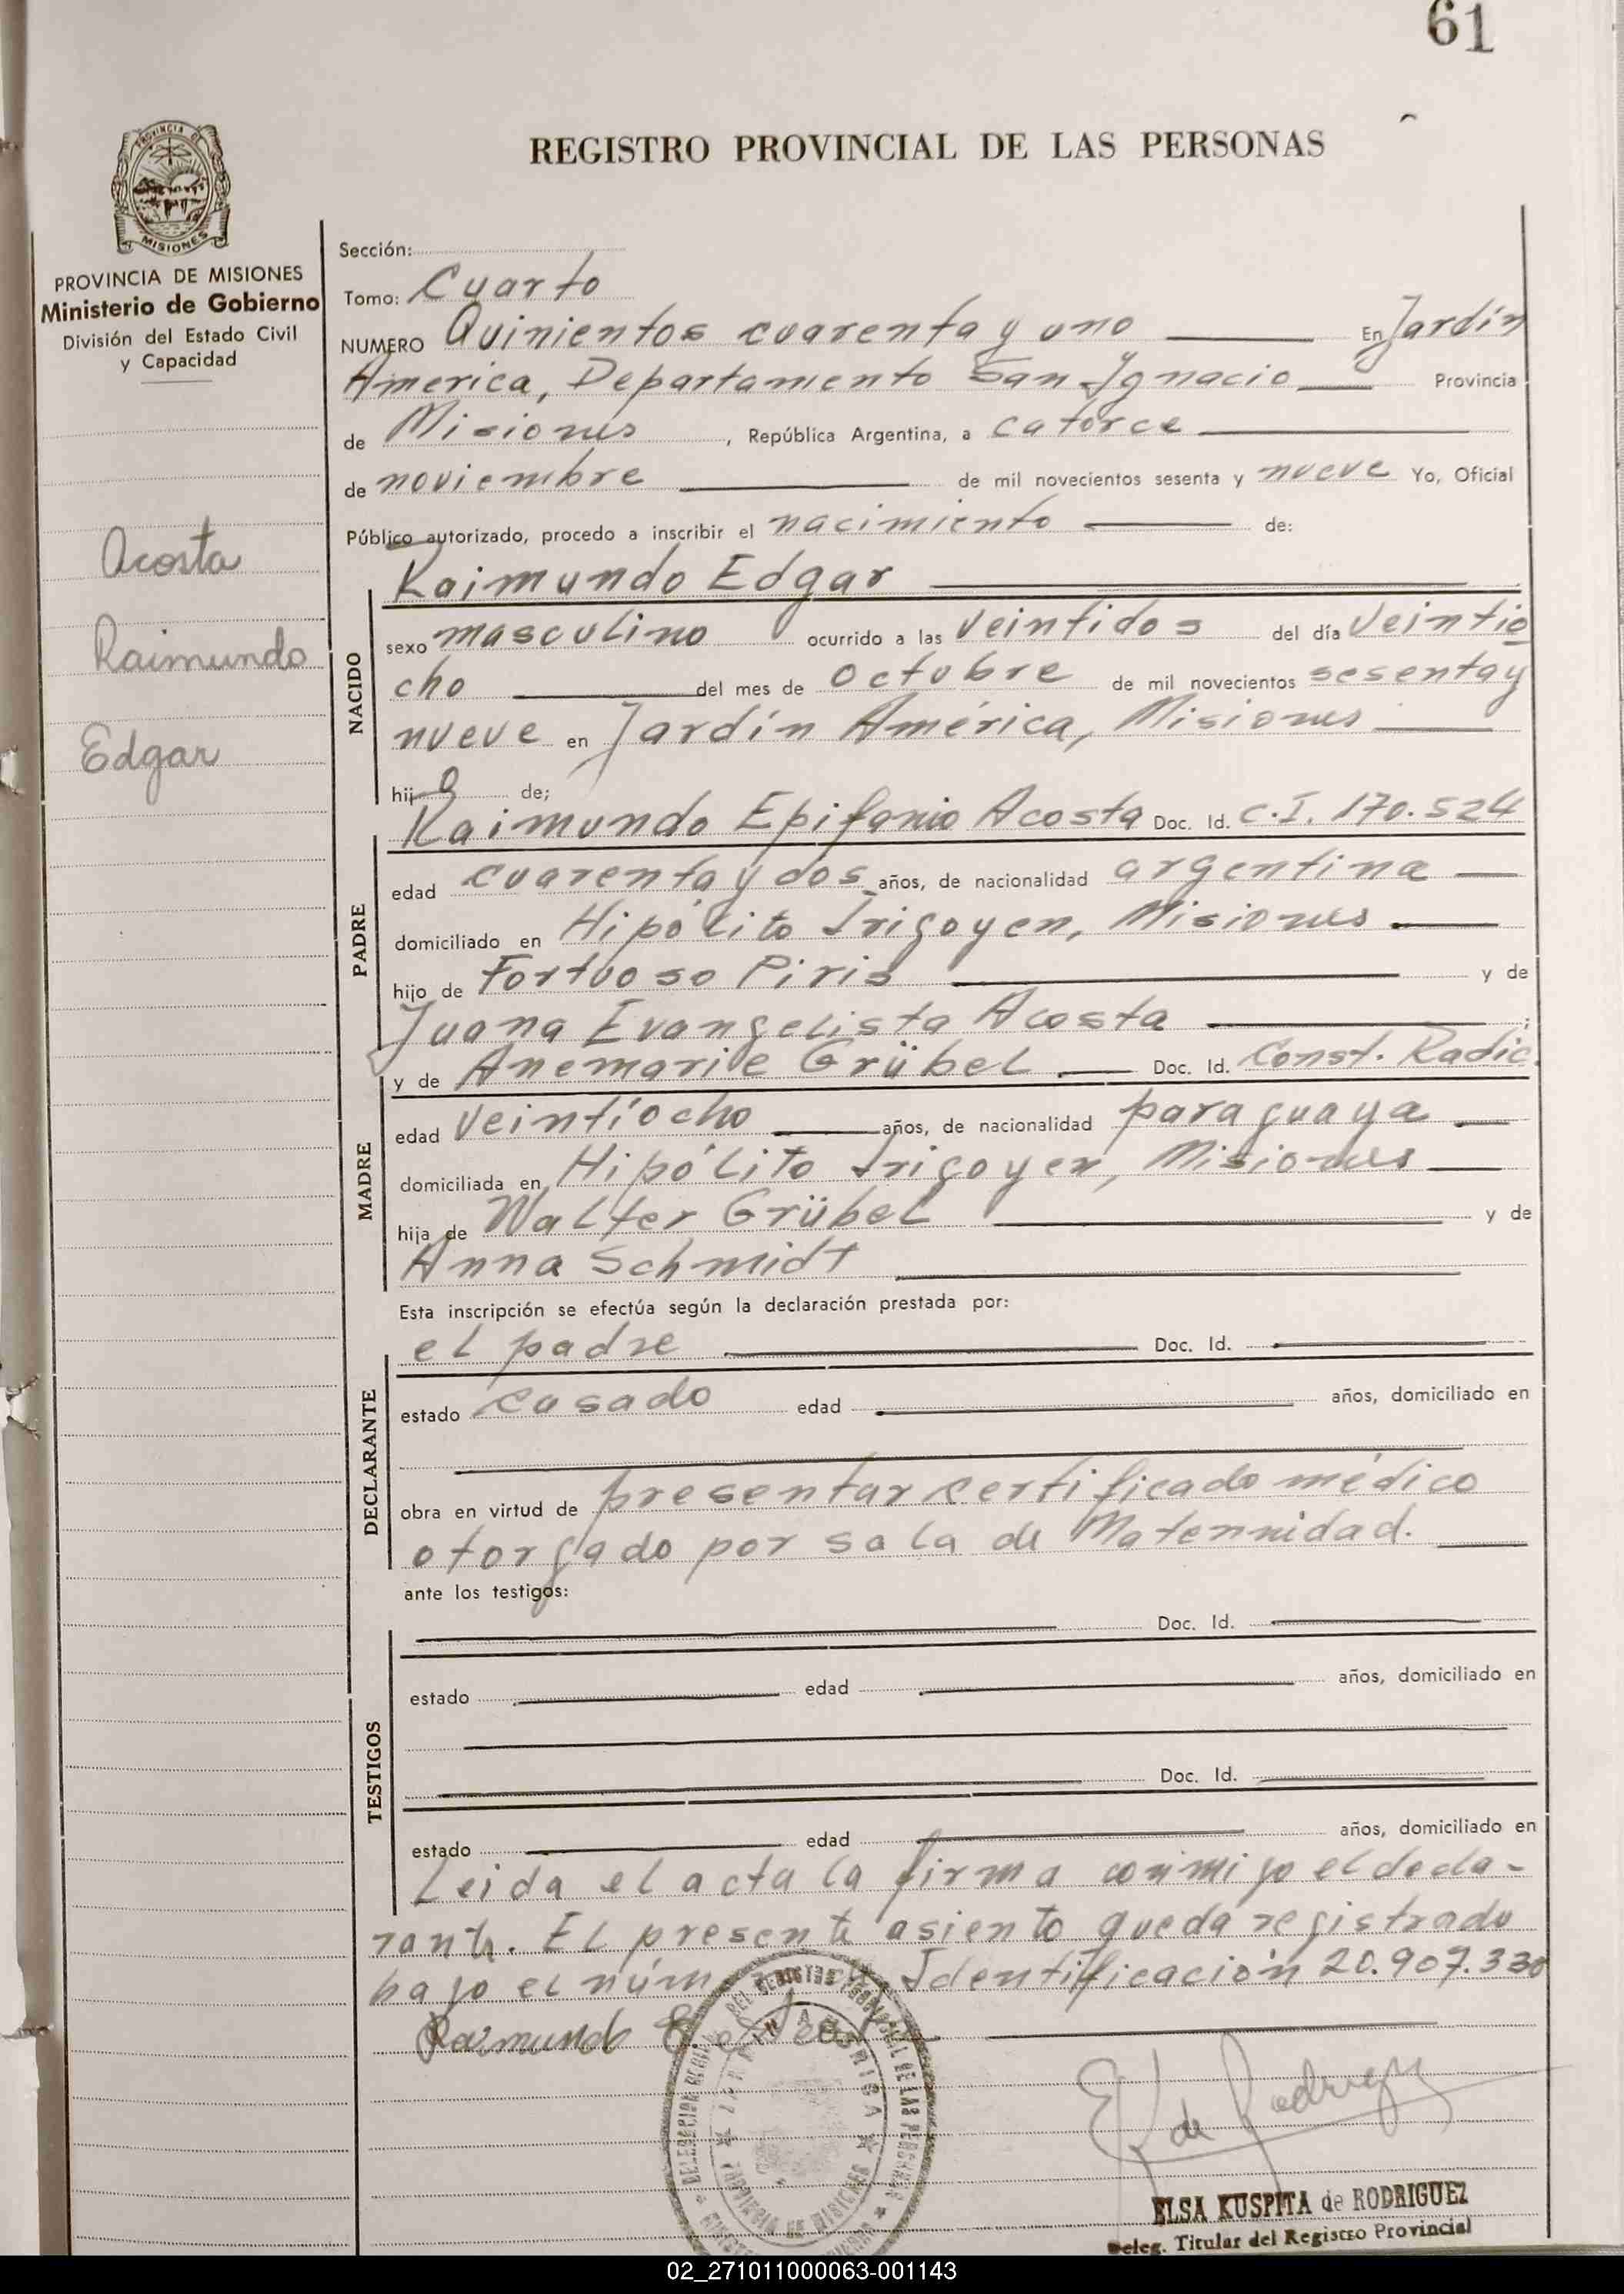 61
REGISTRO PROVINCIAL DE LAS PERSONAS
PROVINCIA DE
MISIONES
PROVINCIA DE MISIONES
Ministerio de Gobierno
División del Estado Civil
y Capacidad
Acosta
Raimundo
Edgar
Sección:
Tomo: Cuarto
NUMERO Quinientos cuarenta y uno En Jardín
America, Departamento San Ignacio Provincia
de Misiones, República Argentina, a catorce
de noviembre de mil novecientos sesenta y nueve Yo, Oficial
Público autorizado, procedo a inscribir el nacimiento de:
Raimundo Edgar
NACIDO
sexo masculino ocurrido a las veintidos del día veintio
cho del mes de octubre de mil novecientos sesenta y
nueve en Jardín América, Misiones
hijo de;
Raimundo Epifanio Acosta Doc. Id. C.I. 170.524
PADRE
edad cuarenta y dos años, de nacionalidad argentina
domiciliado en Hipólito Irigoyen, Misiones
hijo de Fortuoso Piris y de
Juana Evangelista Acosta ;
y de Anemarie Grübel Doc. Id. Const. Radic.
MADRE
edad veintíocho años, de nacionalidad paraguaya
domiciliada en Hipólito Irigoyen, Misiones
hija de Walter Grübel y de
Anna Schmidt
Esta inscripción se efectúa según la declaración prestada por:
el padre Doc. Id.
DECLARANTE
estado casado edad años, domiciliado en
obra en virtud de presentar certificado médico
otorgado por sala de Maternidad.
ante los testigos:
Doc. Id.
TESTIGOS
estado edad años, domiciliado en
Doc. Id.
estado edad años, domiciliado en
Leida el acta la firma conmigo el decla-
rante. El presente asiento queda registrado
bajo el núm Identificación 20.907.330
Raimundo E. Acosta
E K de Rodriguez
ELSA KUSPITA de RODRIGUEZ
Deleg. Titular del Registro Provincial
02_271011000063-001143